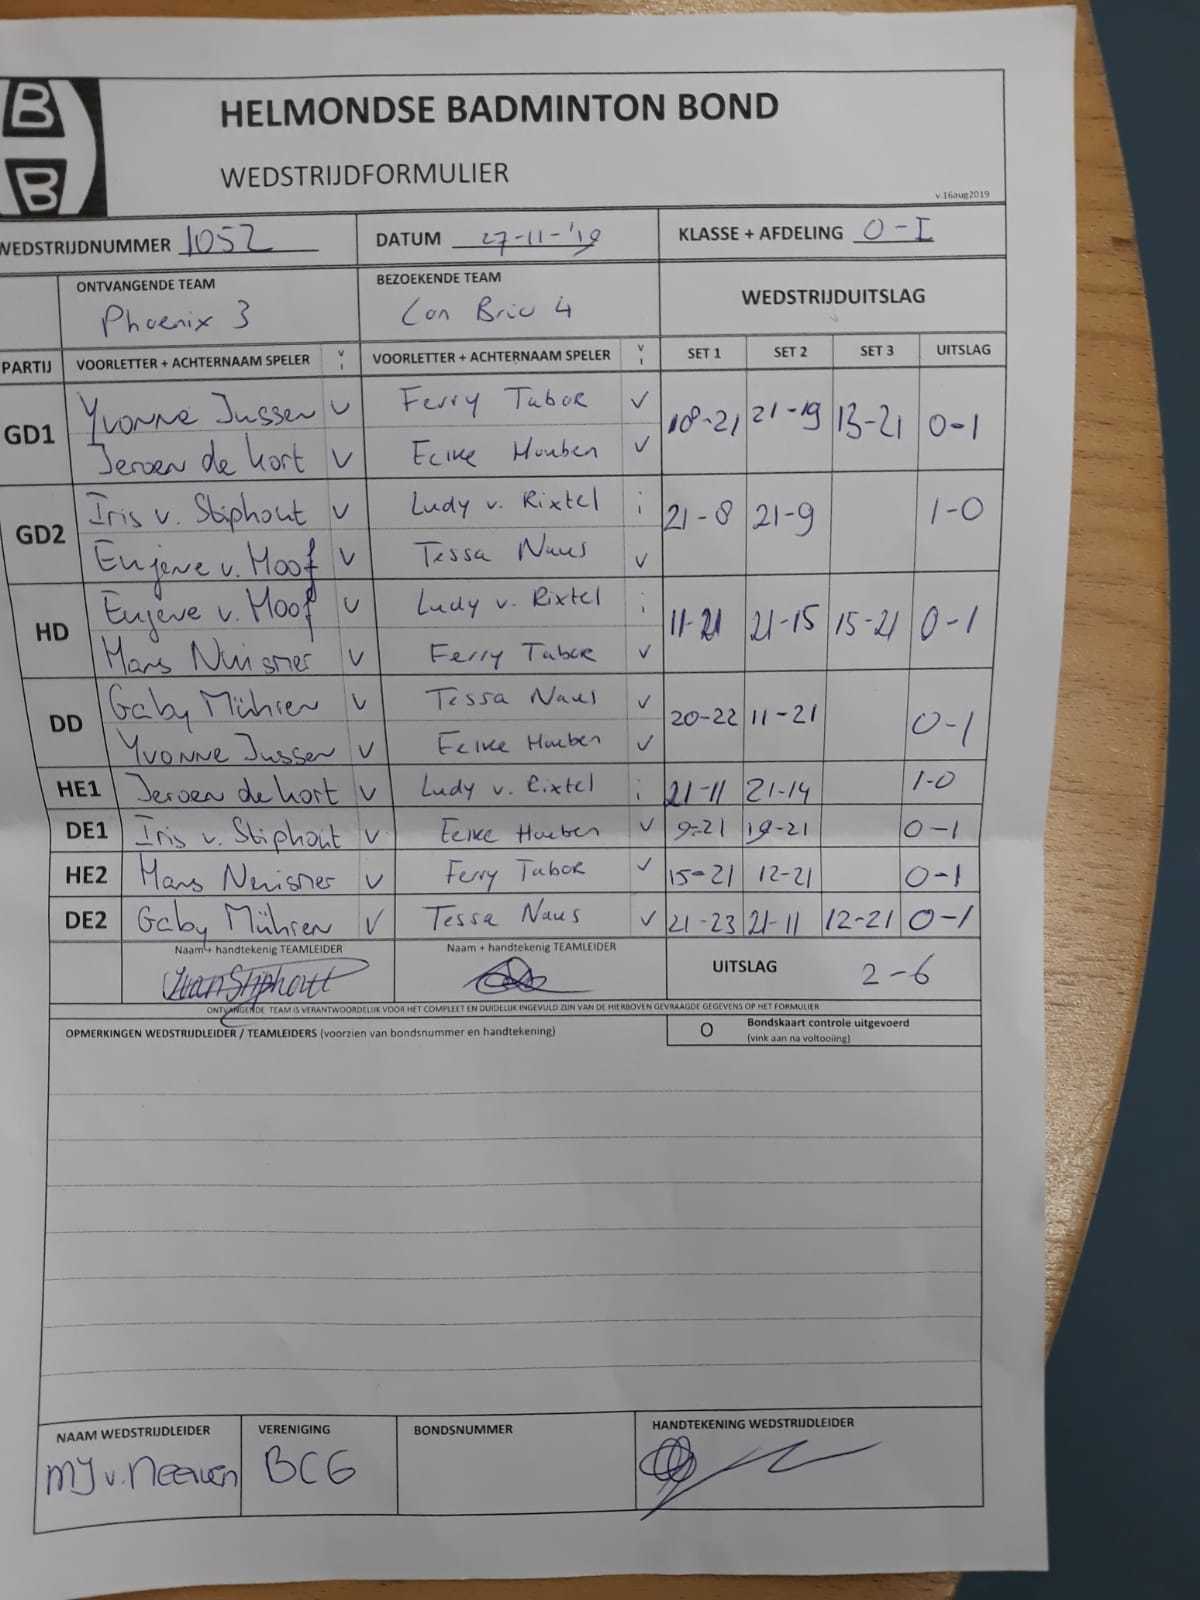 B
B
HELMONDSE BADMINTON BOND
WEDSTRIJDFORMULIER
v.16aug2019
WEDSTRIJDNUMMER 1052 DATUM 27-11-'19 KLASSE + AFDELING O-I
ONTVANGENDE TEAM BEZOEKENDE TEAM WEDSTRIJDUITSLAG
Phoenix 3 Con Brio 4
PARTIJ VOORLETTER + ACHTERNAAM SPELER V I VOORLETTER + ACHTERNAAM SPELER V I SET 1 SET 2 SET 3 UITSLAG
GD1 Yvonne Jussen V Ferry Tabor V 18-21 21-19 13-21 0-1
Jeroen de Kort V Eelke Houben V
GD2 Iris v. Stiphout V Ludy v. Rixtel i 21-8 21-9 1-0
Eugene v. Hoof V Tessa Naus V
HD Eugene v. Hoof V Ludy v. Rixtel i 11-21 21-15 15-21 0-1
Hans V Ferry Tabor V
DD Gaby Mühren V Tessa Naus V 20-22 11-21 0-1
Yvonne Jussen V Eelke Houben V
HE1 Jeroen de Kort V Ludy v. Rixtel i 21-11 21-14 1-0
DE1 Iris v. Stiphout V Eelke Houben V 9-21 19-21 0-1
HE2 Hans V Ferry Tabor V 15-21 12-21 0-1
DE2 Gaby Mühren V Tessa Naus V 21-23 21-11 12-21 0-1
Naam + handtekenig TEAMLEIDER Naam + handtekenig TEAMLEIDER UITSLAG 2-6
IvanStiphout
ONTVANGENDE TEAM IS VERANTWOORDELIJK VOOR HET COMPLEET EN DUIDELIJK INGEVULD ZIJN VAN DE HIERBOVEN GEVRAAGDE GEGEVENS OP HET FORMULIER
OPMERKINGEN WEDSTRIJDLEIDER / TEAMLEIDERS (voorzien van bondsnummer en handtekening) O Bondskaart controle uitgevoerd
(vink aan na voltooiing)
NAAM WEDSTRIJDLEIDER VERENIGING BONDSNUMMER HANDTEKENING WEDSTRIJDLEIDER
MJ v. Neerven BCG